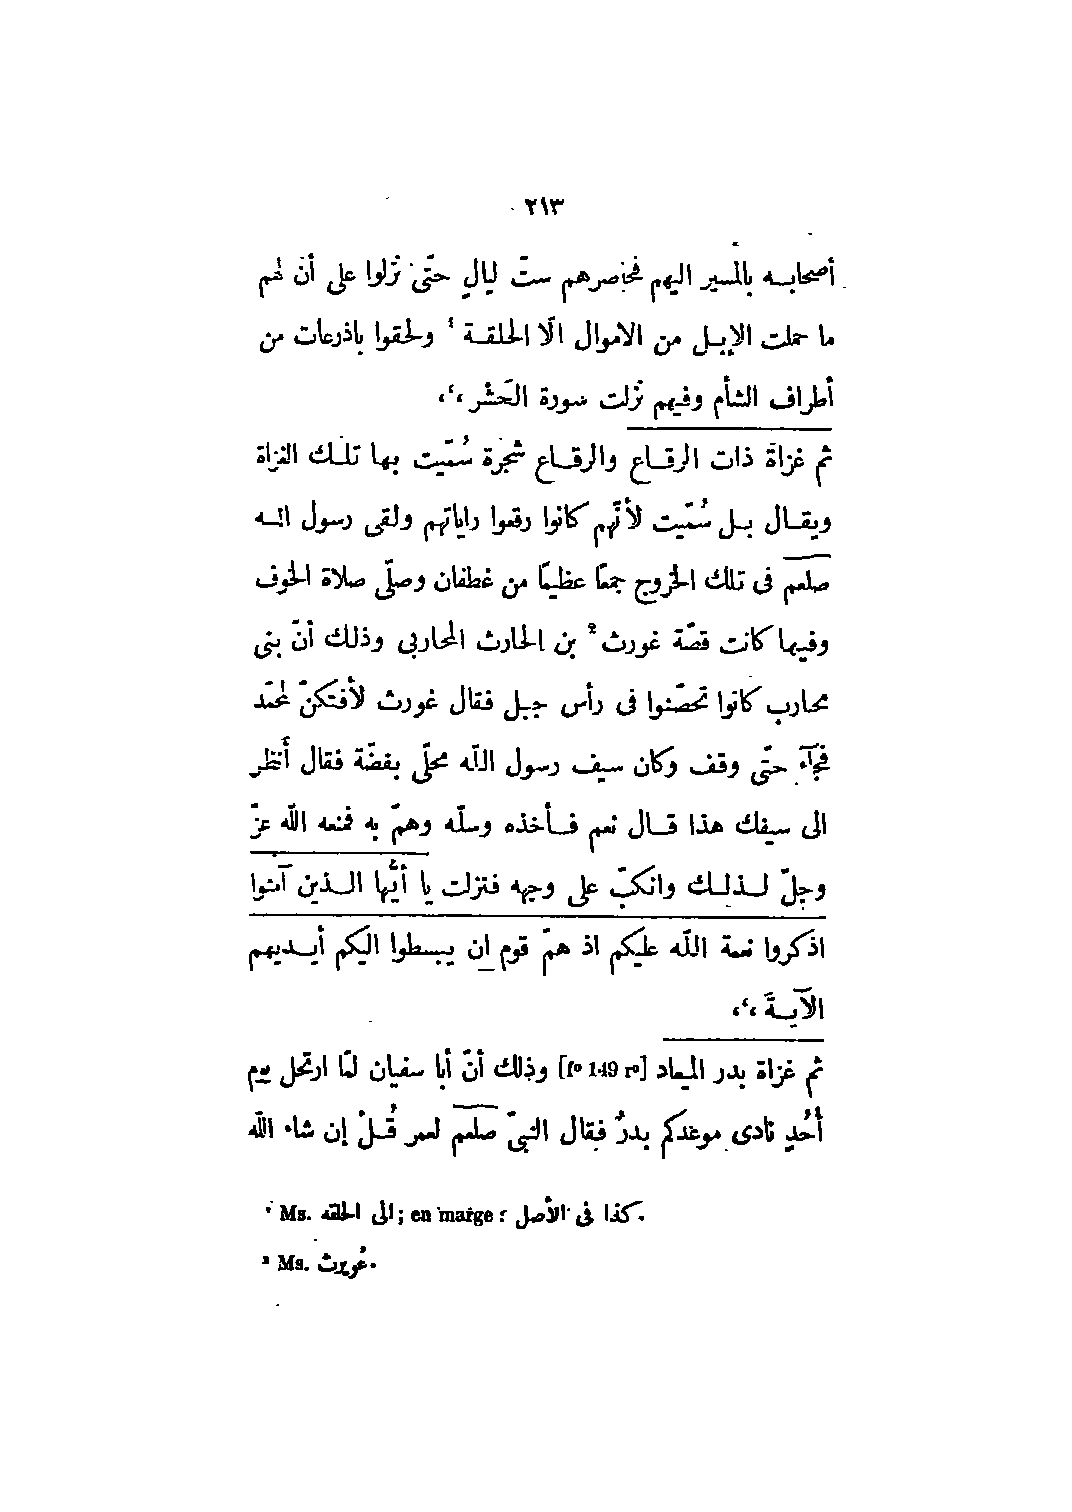 ٢١٣
أصحابه بالمسير اليهم فحاصرهم ستّ ليالٍ حتّى نزلوا على أنّ لهم
ما حملت الإبل من الاموال الّا الحلقة ¹ ولحقوا باذرعات من
أطراف الشأم وفيهم نزلت سورة الحَشْر ،‘،
ثم غزاة ذات الرقاع والرقاع شجرة سُمّيت بها تلك الغزاة
ويقال بل سُمّيت لأنّهم كانوا رقعوا راياتهم ولقى رسول الله
صلعم فى تلك الخروج جمعًا عظيمًا من غطفان وصلّى صلاة الخوف
وفيها كانت قصّة غورث ² بن الحارث المحاربى وذلك أنّ بنى
محارب كانوا تحصّنوا فى رأس جبل فقال غورث لأفتكنّ لمحمّد
فجآء حتّى وقف وكان سيف رسول اللّه محلّى بفضّة فقال أنظر
الى سيفك هذا قال نعم فأخذه وسلّه وهمّ به فمنعه اللّه عزّ
وجلّ لذلك وانكبّ على وجهه فنزلت يا أيُّها الذين آمنوا
اذكروا نعمة اللّه عليكم اذ همّ قوم ان يبسطوا اليكم أيديهم
الآيةَ ،‘،
ثم غزاة بدر الميعاد [f° 149 r°] وذلك أنّ أبا سفيان لمّا ارتحل يوم
أُحُدٍ نادى موعدكم بدرٌ فقال النبىّ صلعم لعمر قُلْ إن شاء اللّه
¹ Ms. الى الحلقه; en marge : كذا فى الأصل.
² Ms. غُويرث.